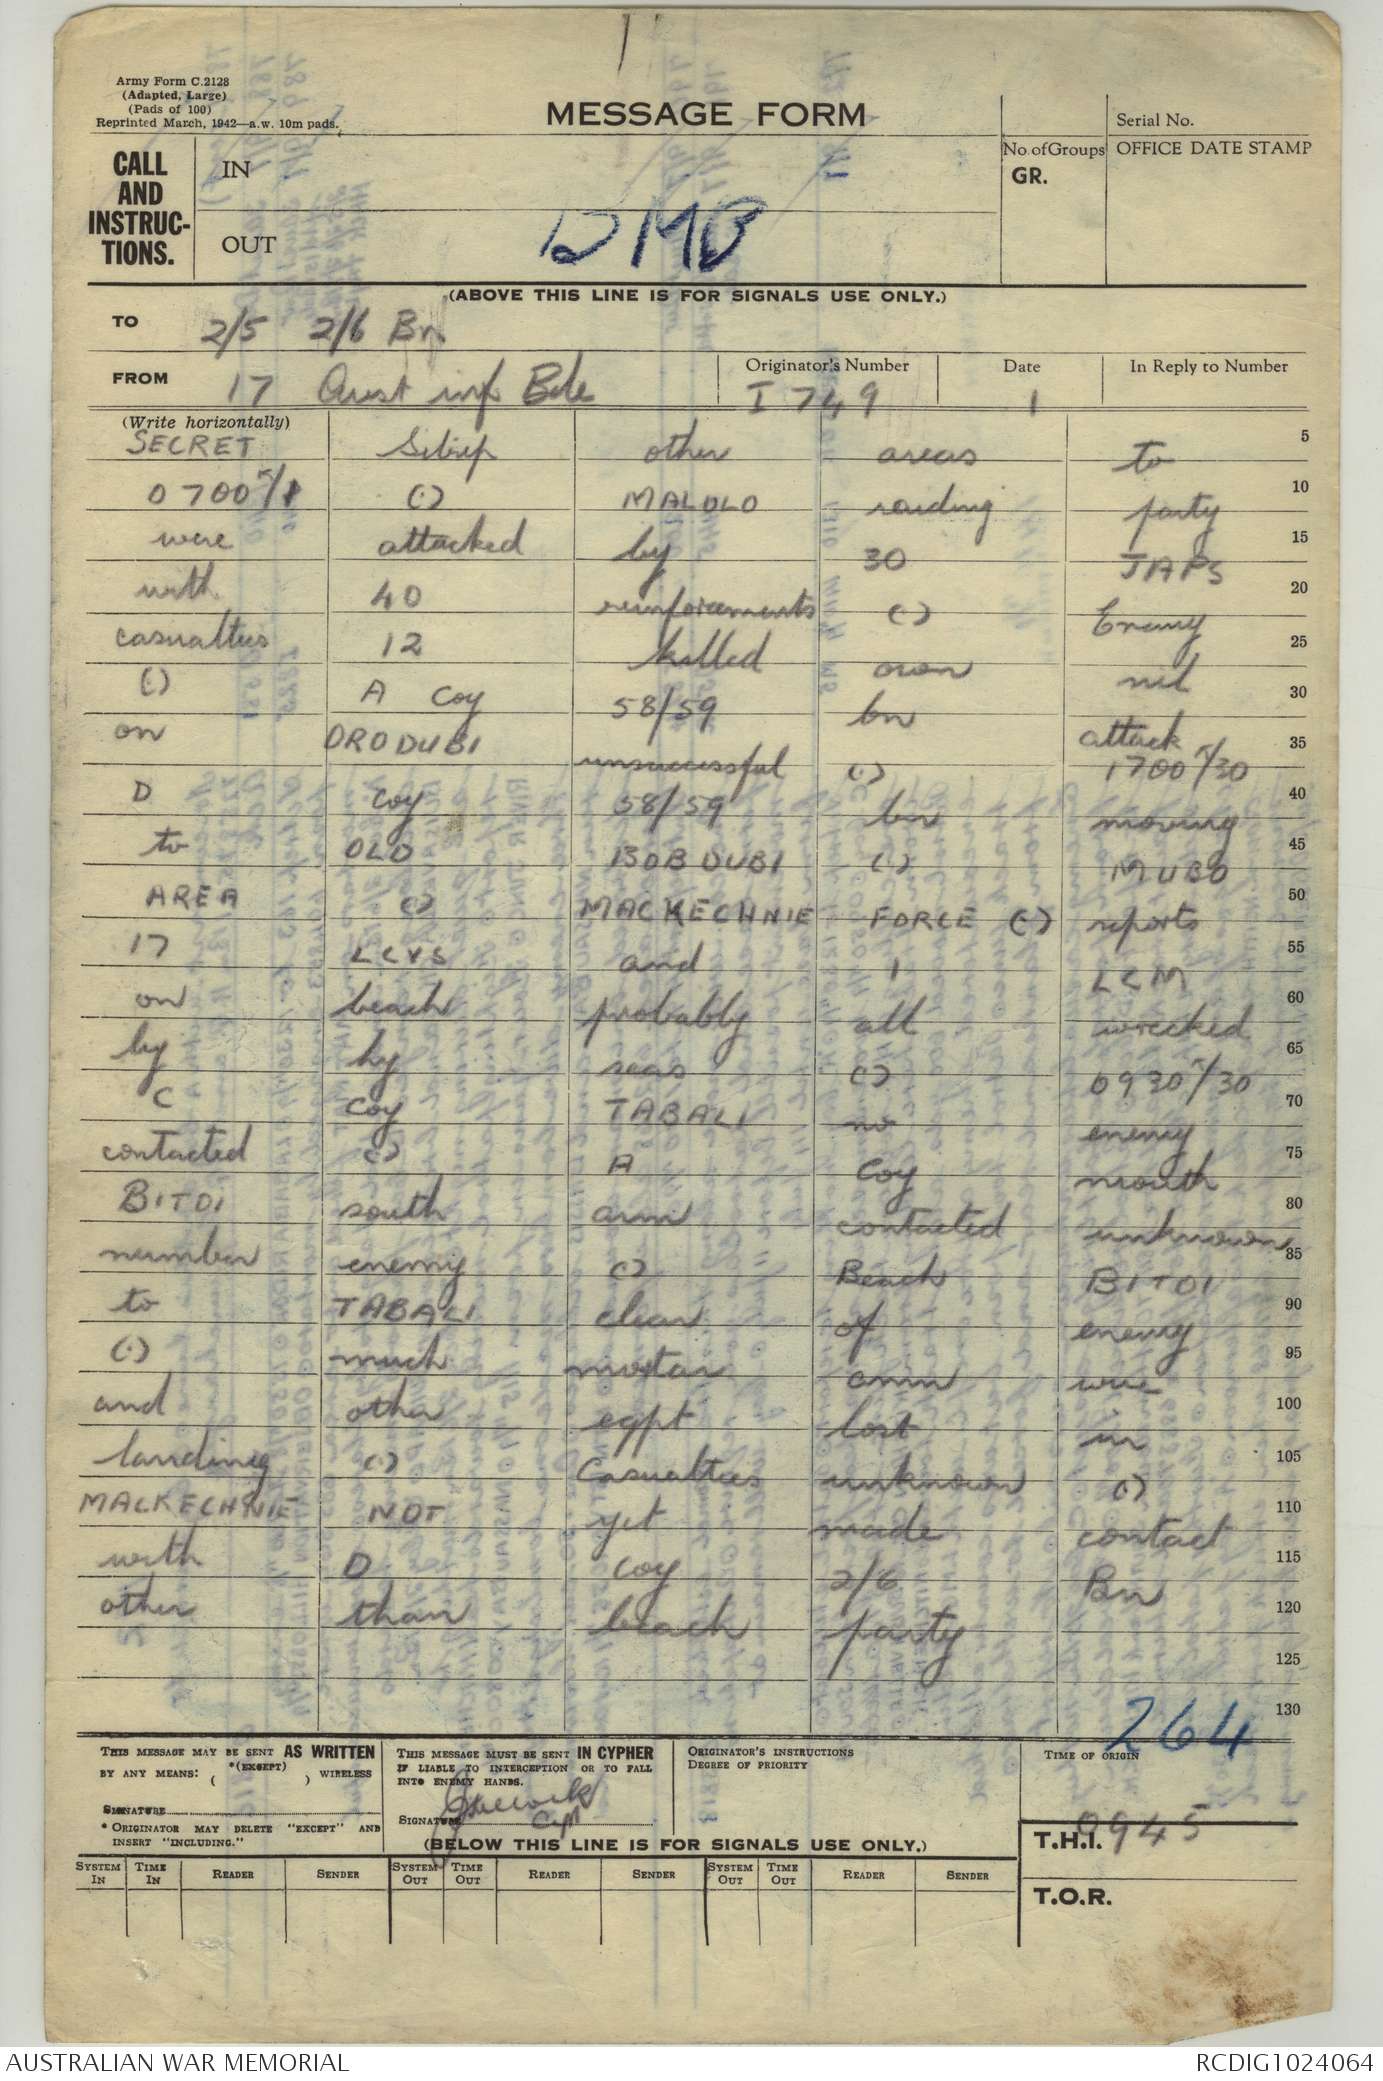 Army Form C.2128
(Adapted, Large)
(Pads of 100)
Reprinted March, 1942—a.w. 10m pads.
MESSAGE FORM
Serial No.
CALL AND INSTRUC-TIONS.
IN
OUT
No. of Groups
GR.
OFFICE DATE STAMP
DMB
(ABOVE THIS LINE IS FOR SIGNALS USE ONLY.)
TO 2/5 2/6 Bn.
FROM 17 Aust inf Bde
Originator's Number I 749
Date 1
In Reply to Number
(Write horizontally)
SECRET Sitrep other areas to 5
0700K/1 (.) MALOLO raiding party 10
were attacked by 30 JAPS 15
with 40 reinforcements (.) Enemy 20
casualties 12 killed own nil 25
(.) A Coy 58/59 bn attack 30
on ORODUBI unsuccessful (.) 1700K/30 35
D coy 58/59 bn moving 40
to OLD BOBDUBI (.) MUBO 45
AREA (.) MACKECHNIE FORCE (.) reports 50
17 LCVS and 1 LCM 55
on beach probably all wrecked 60
by hy seas (.) 0930K/30 65
C Coy TABALI no enemy 70
contacted (.) A Coy mouth 75
BITOI south arm contacted unknown 80
number enemy (.) Beach BITOI 85
to TABALI clear of enemy 90
(.) much mortar amm wire 95
and other eqpt lost in 100
landing (.) Casualties unknown (.) 105
MACKECHNIE NOT yet made contact 110
with D coy 2/6 Bn 115
other than beach party 120
125
130
264
THIS MESSAGE MAY BE SENT AS WRITTEN
BY ANY MEANS: *(EXCEPT) ( ) WIRELESS
SIGNATURE
* ORIGINATOR MAY DELETE "EXCEPT" AND INSERT "INCLUDING."
THIS MESSAGE MUST BE SENT IN CYPHER
IF LIABLE TO INTERCEPTION OR TO FALL INTO ENEMY HANDS.
SIGNATURE
ORIGINATOR'S INSTRUCTIONS
DEGREE OF PRIORITY
TIME OF ORIGIN
0945
T.H.I.
T.O.R.
(BELOW THIS LINE IS FOR SIGNALS USE ONLY.)
SYSTEM IN TIME IN READER SENDER SYSTEM OUT TIME OUT READER SENDER SYSTEM OUT TIME OUT READER SENDER
AUSTRALIAN WAR MEMORIAL
RCDIG1024064